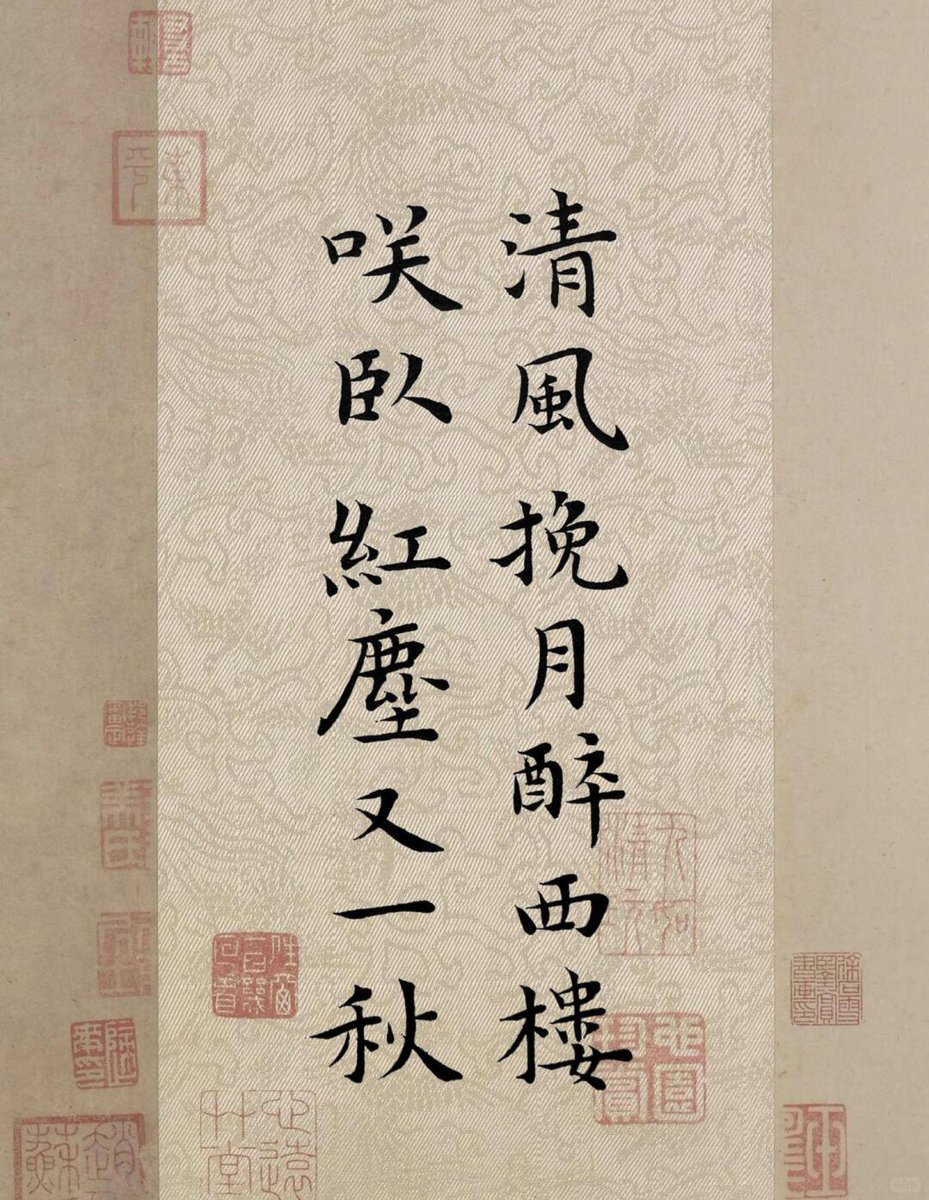 清風挽月醉西樓
咲臥紅塵又一秋